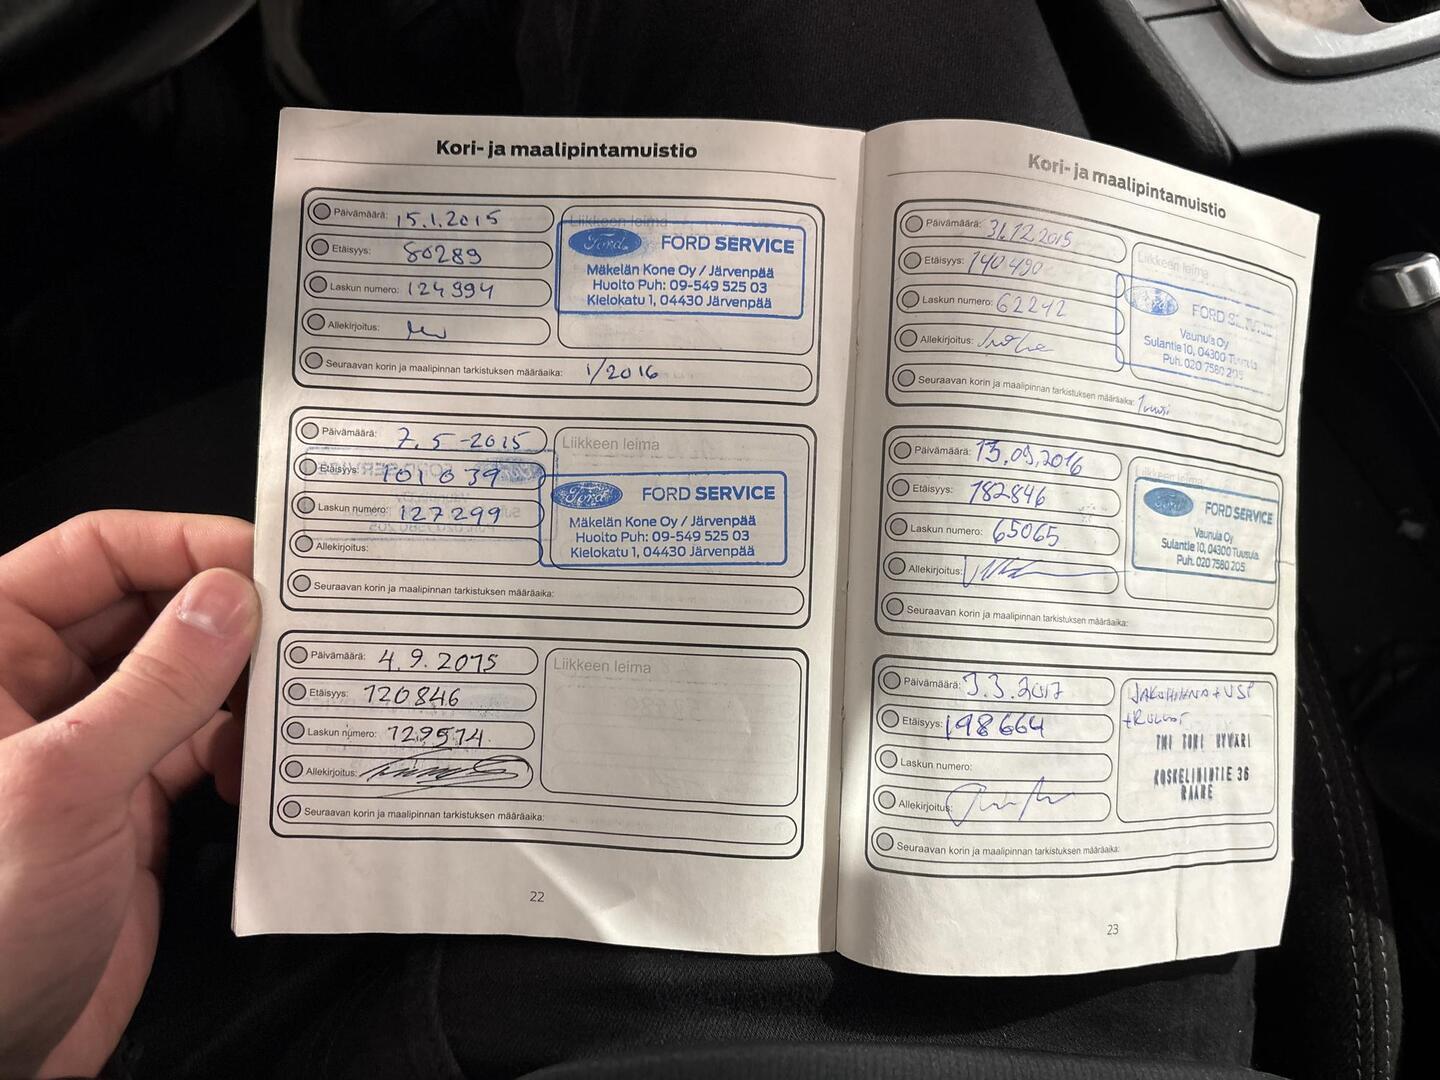 Kori- ja maalipintamuistio
Päivämäärä: 15.1.2015
Etäisyys: 80289
Laskun numero: 124994
Allekirjoitus:
Seuraavan korin ja maalipinnan tarkistuksen määräaika: 1/2016
Liikkeen leima
Ford FORD SERVICE
Mäkelän Kone Oy / Järvenpää
Huolto Puh: 09-549 525 03
Kielokatu 1, 04430 Järvenpää
Päivämäärä: 7.5-2015
Etäisyys: 101039
Laskun numero: 127299
Allekirjoitus:
Seuraavan korin ja maalipinnan tarkistuksen määräaika:
Liikkeen leima
Ford FORD SERVICE
Mäkelän Kone Oy / Järvenpää
Huolto Puh: 09-549 525 03
Kielokatu 1, 04430 Järvenpää
Päivämäärä: 4.9.2015
Etäisyys: 120846
Laskun numero: 129514
Allekirjoitus:
Seuraavan korin ja maalipinnan tarkistuksen määräaika:
Liikkeen leima
22
Kori- ja maalipintamuistio
Päivämäärä: 31.12.2015
Etäisyys: 140490
Laskun numero: 62242
Allekirjoitus:
Seuraavan korin ja maalipinnan tarkistuksen määräaika: 1 vuosi
Liikkeen leima
FORD SERVICE
Vaunula Oy
Sulantie 10, 04300 Tuusula
Puh. 020 7580 205
Päivämäärä: 13.09.2016
Etäisyys: 182846
Laskun numero: 65065
Allekirjoitus:
Seuraavan korin ja maalipinnan tarkistuksen määräaika:
Liikkeen leima
Ford FORD SERVICE
Vaunula Oy
Sulantie 10, 04300 Tuusula
Puh. 020 7580 205
Päivämäärä: 3.3.2017
Etäisyys: 198664
Laskun numero:
Allekirjoitus:
Seuraavan korin ja maalipinnan tarkistuksen määräaika:
JAKOHIHNA + VSP
+ RULLAT
TMI TONI HYVÄRI
KOSKELININTIE 36
RAAHE
23